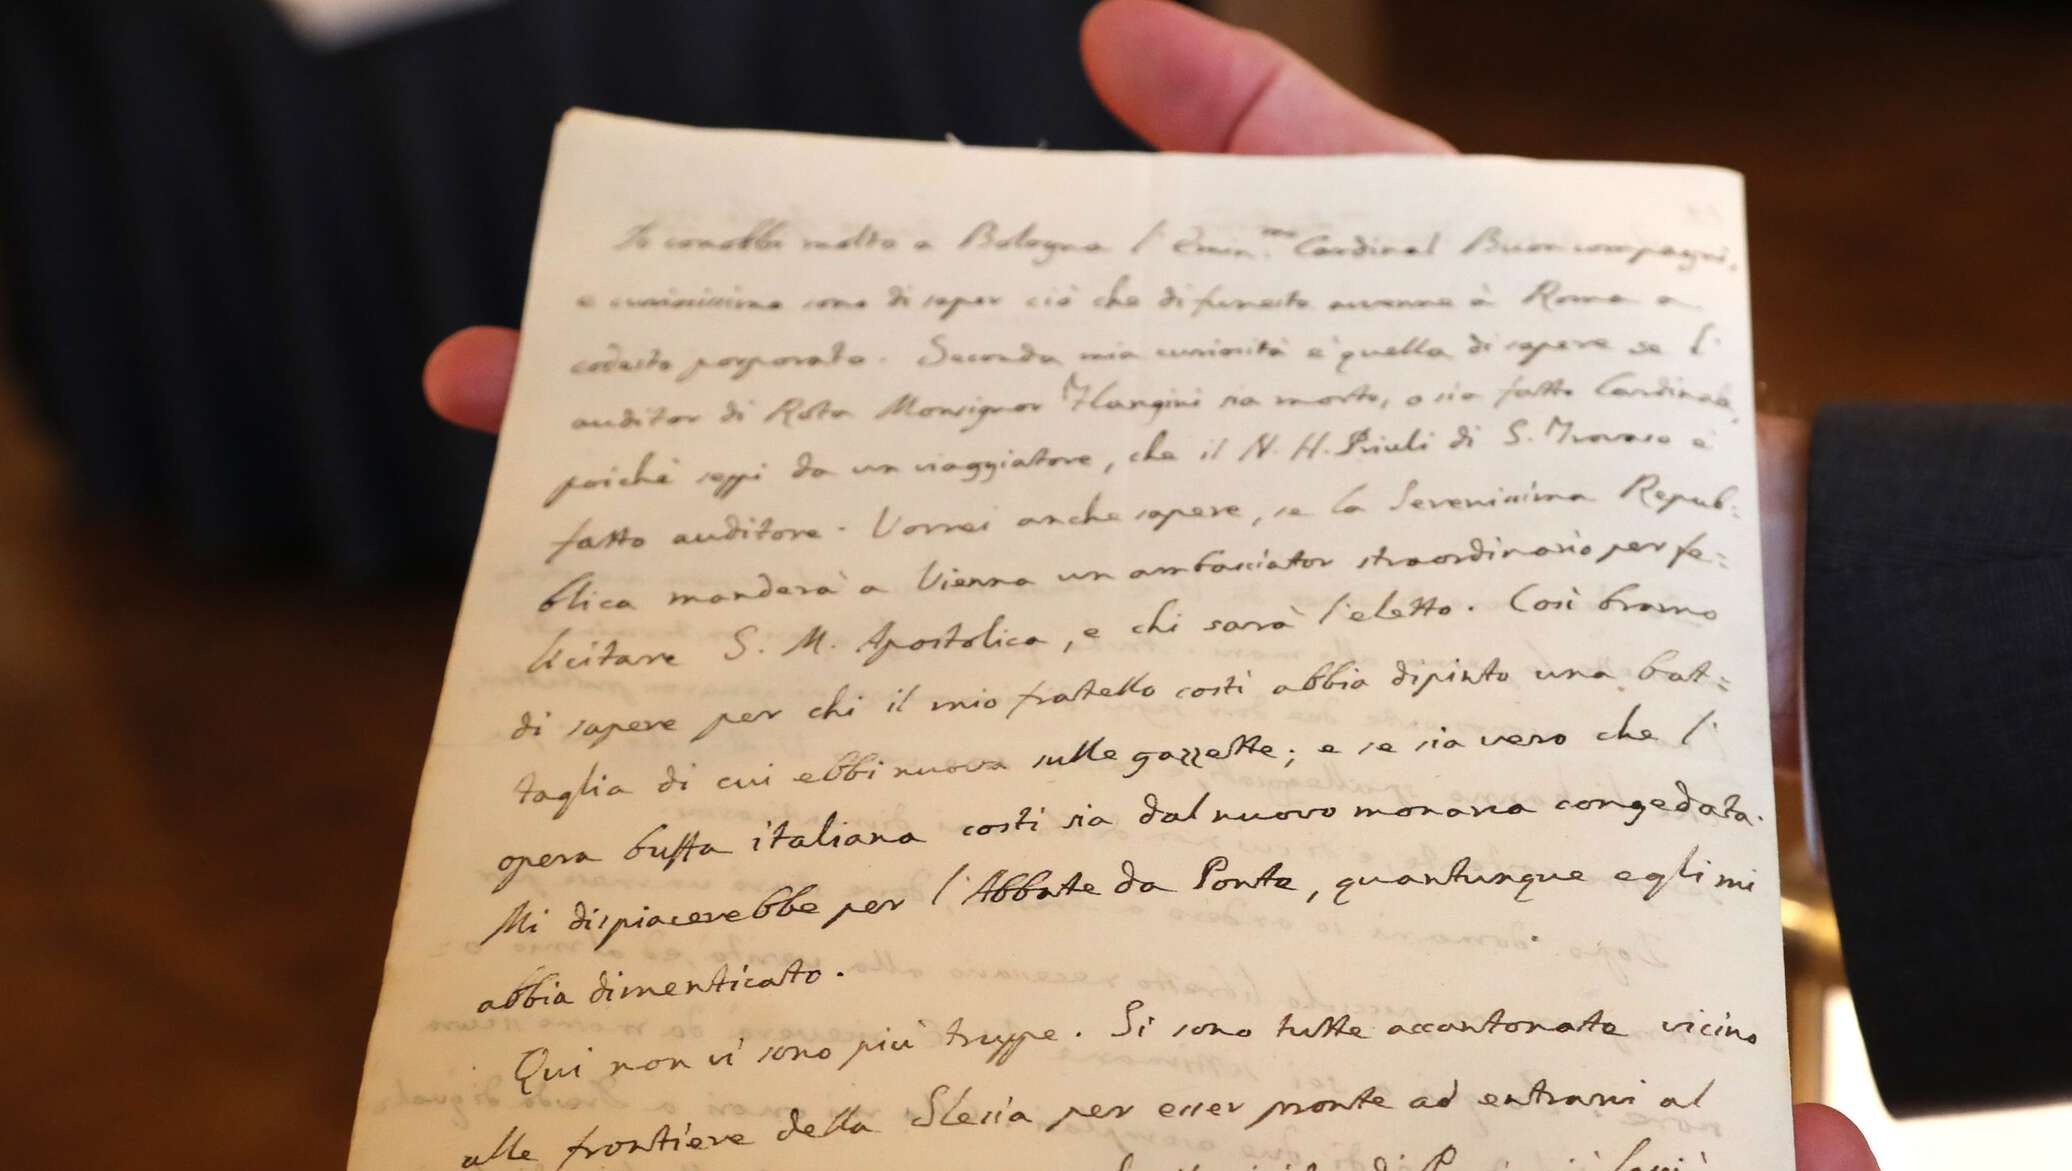 Io conobbi molto a Bologna l'Emin.mo Cardinal Buoncompagni,
e curiosissimo sono di saper ciò che di funesto avvenne à Roma a
codesto porporato. Seconda mia curiosità e' quella di sapere se l'
auditor di Rota Monsignor Flangini sia morto, o sia fatto Cardinale,
poichè seppi da un viaggiatore, che il N. H. Priuli di S. Trovaso è
fatto auditore. Vorrei anche sapere, se la Serenissima Repub=
blica manderà a Vienna un ambasciator straordinario per fe=
licitare S. M. Apostolica, e chi sarà l'eletto. Così bramo
di sapere per chi il mio fratello costì abbia dipinto una bat=
taglia di cui ebbi nuova sulle gazzette; e se sia vero che l'
opera buffa italiana costì sia dal nuovo monarca congedata.
Mi dispiacerebbe per l'Abbate da Ponte, quantunque egli mi
abbia dimenticato.
Qui non vi sono più truppe. Si sono tutte accantonate vicino
alle frontiere della Slesia per esser pronte ad entrarvi al